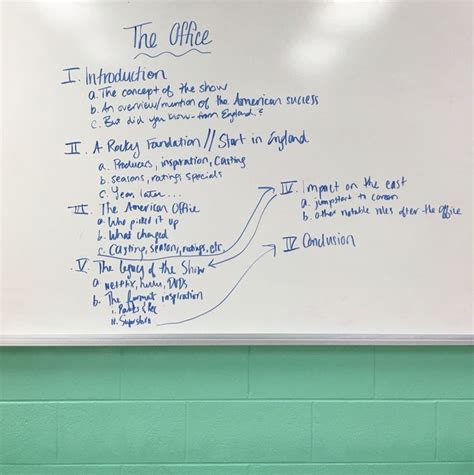 The Office
I. Introduction
a. The concept of the show
b. An overview/mention of the American success
c. But did you know-from England?
II. A Rocky Foundation // Start in England
a. Producers, inspiration, Casting
b. seasons, ratings specials
c. Year later...
III. The American Office
a. Who picked it up
b. What changed
c. Casting, seasons, ratings, etc.
IV. Impact on the cast
a. jumpstart to career
b. other notable roles after the Office
V. The legacy of the Show
a. Netflix, hulu, DVDs
b. The format inspiration
i. Parks & Rec
ii. Superstore
IV Conclusion